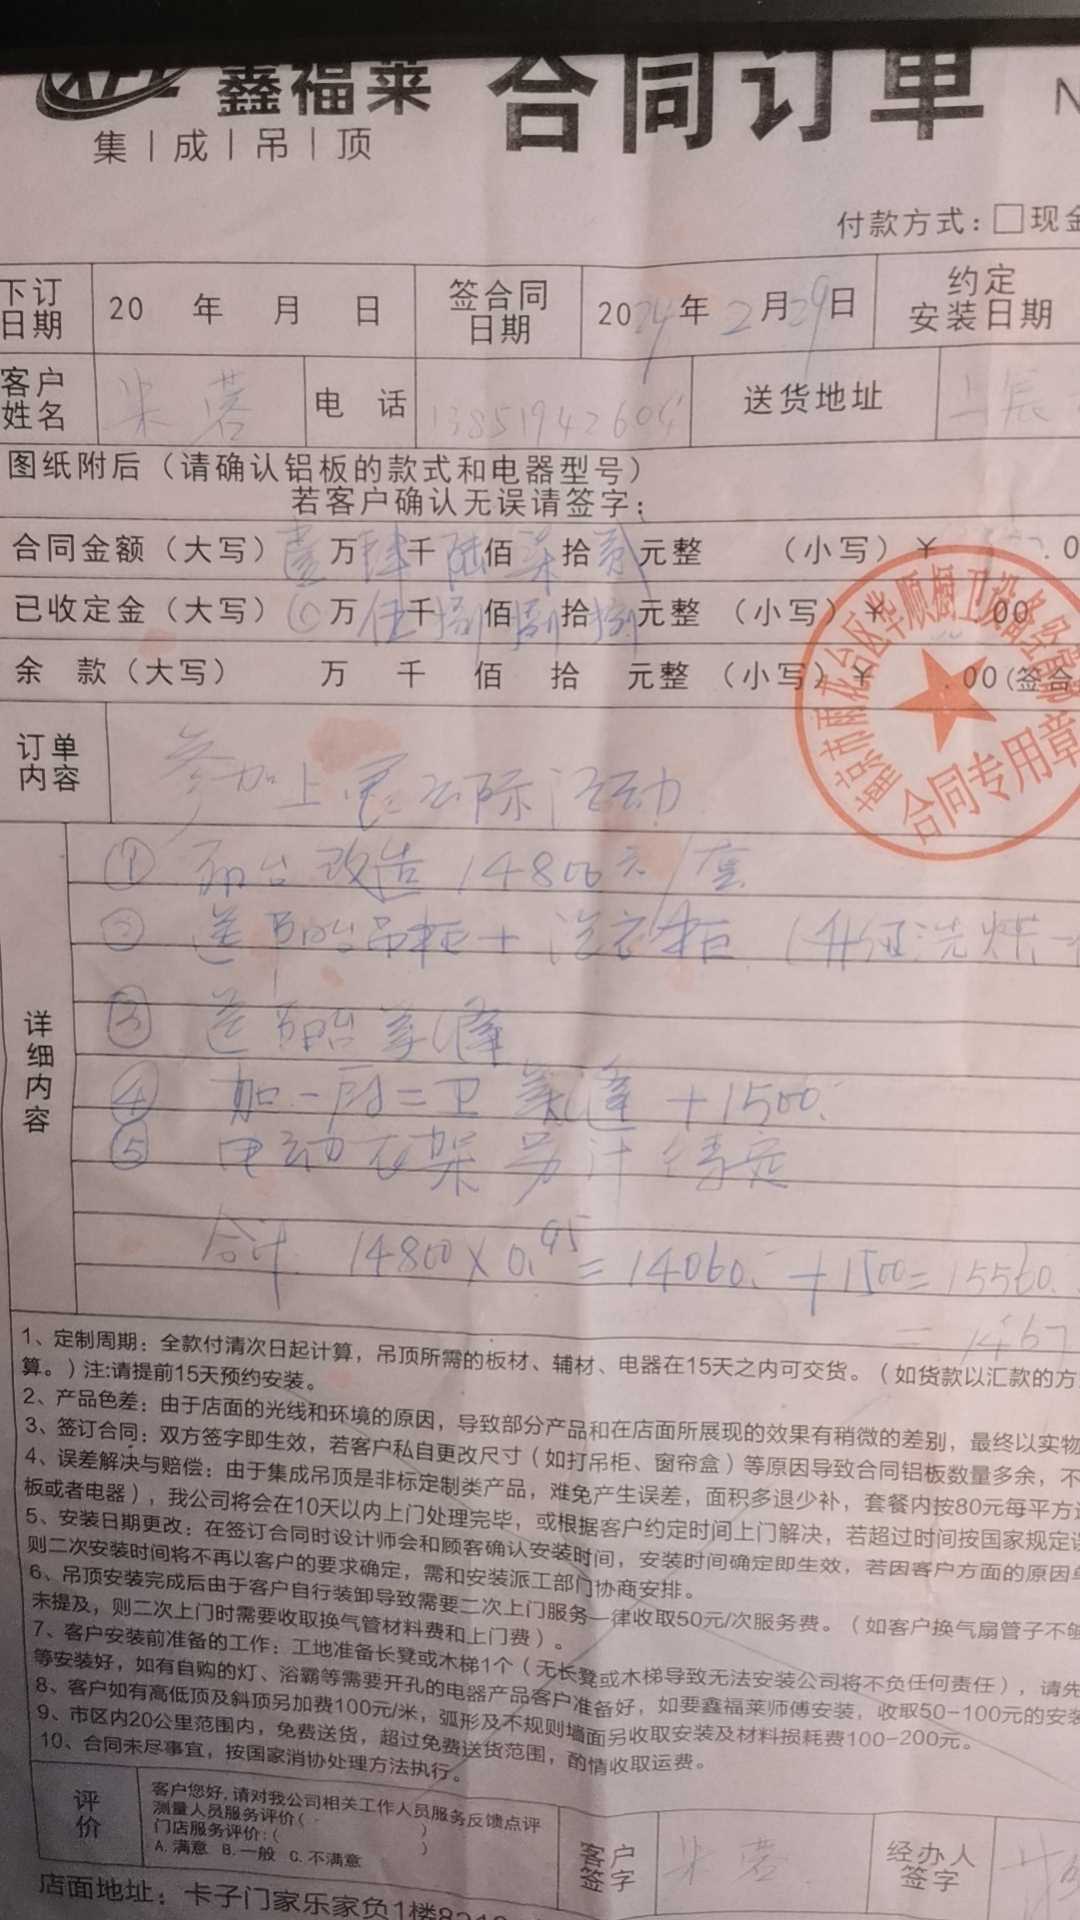 鑫福莱 合同订单 N
集成吊顶
付款方式：□现金
下订日期 20 年 月 日 签合同日期 2024年2月29日 约定安装日期
客户姓名 朱蓉 电话 13851942604 送货地址 上辰
图纸附后（请确认铝板的款式和电器型号）
若客户确认无误请签字：
合同金额（大写）壹万肆千陆佰柒拾贰元整 （小写）￥ .0
已收定金（大写）0万仟捌佰捌拾捌元整 （小写）￥ 00
余款（大写） 万 千 佰 拾 元整 （小写）￥ .00(签合
南京市雨花台区华顺厨卫设备经营部
合同专用章
订单内容 参加上辰云际活动
详细内容
① 阳台改造 14800元/套
② 送阳台吊柜+洗衣柜（升级洗烘一
③ 送阳台美缝
④ 加一厨二卫美缝 +1500.
⑤ 电动衣架另计待定
合计 14800×0.95=14060.+1500=15560.
=1467
1、定制周期：全款付清次日起计算，吊顶所需的板材、辅材、电器在15天之内可交货。（如货款以汇款的方
算。）注:请提前15天预约安装。
2、产品色差：由于店面的光线和环境的原因，导致部分产品和在店面所展现的效果有稍微的差别，最终以实物
3、签订合同：双方签字即生效，若客户私自更改尺寸（如打吊柜、窗帘盒）等原因导致合同铝板数量多余，不
4、误差解决与赔偿：由于集成吊顶是非标定制类产品，难免产生误差，面积多退少补，套餐内按80元每平方
板或者电器），我公司将会在10天以内上门处理完毕，或根据客户约定时间上门解决，若超过时间按国家规定
5、安装日期更改：在签订合同时设计师会和顾客确认安装时间，安装时间确定即生效，若因客户方面的原因
则二次安装时间将不再以客户的要求确定，需和安装派工部门协商安排。
6、吊顶安装完成后由于客户自行装卸导致需要二次上门服务一律收取50元/次服务费。（如客户换气扇管子不够
未提及，则二次上门时需要收取换气管材料费和上门费）。
7、客户安装前准备的工作：工地准备长凳或木梯1个（无长凳或木梯导致无法安装公司将不负任何责任），请先
等安装好，如有自购的灯、浴霸等需要开孔的电器产品客户准备好，如要鑫福莱师傅安装，收取50-100元的安装
8、客户如有高低顶及斜顶另加费100元/米，弧形及不规则墙面另收取安装及材料损耗费100-200元。
9、市区内20公里范围内，免费送货，超过免费送货范围，酌情收取运费。
10、合同未尽事宜，按国家消协处理方法执行。
评价 客户您好,请对我公司相关工作人员服务反馈点评
测量人员服务评价( )
门店服务评价:( )
A.满意 B.一般 C.不满意
客户签字 朱蓉 经办人签字
店面地址：卡子门家乐家负1楼